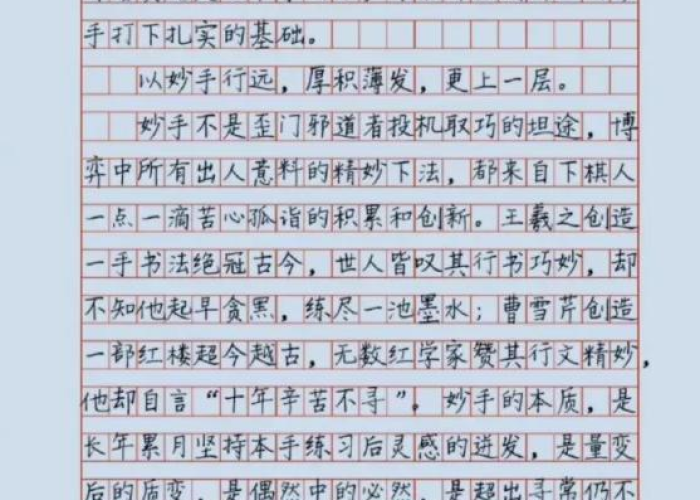 手打下扎实的基础。
以妙手行远，厚积薄发，更上一层。
妙手不是歪门邪道者投机取巧的坦途，博
弈中所有出人意料的精妙下法，都来自下棋人
一点一滴苦心孤诣的积累和创新。王羲之创造
一手书法绝冠古今，世人皆叹其行书巧妙，却
不知他起早贪黑，练尽一池墨水；曹雪芹创造
一部红楼超今越古，无数红学家赞其行文精妙，
他却自言“十年辛苦不寻”。妙手的本质，是
长年累月坚持本手练习后灵感的迸发，是量变
后的质变，是偶然中的必然，是超出寻常仍不